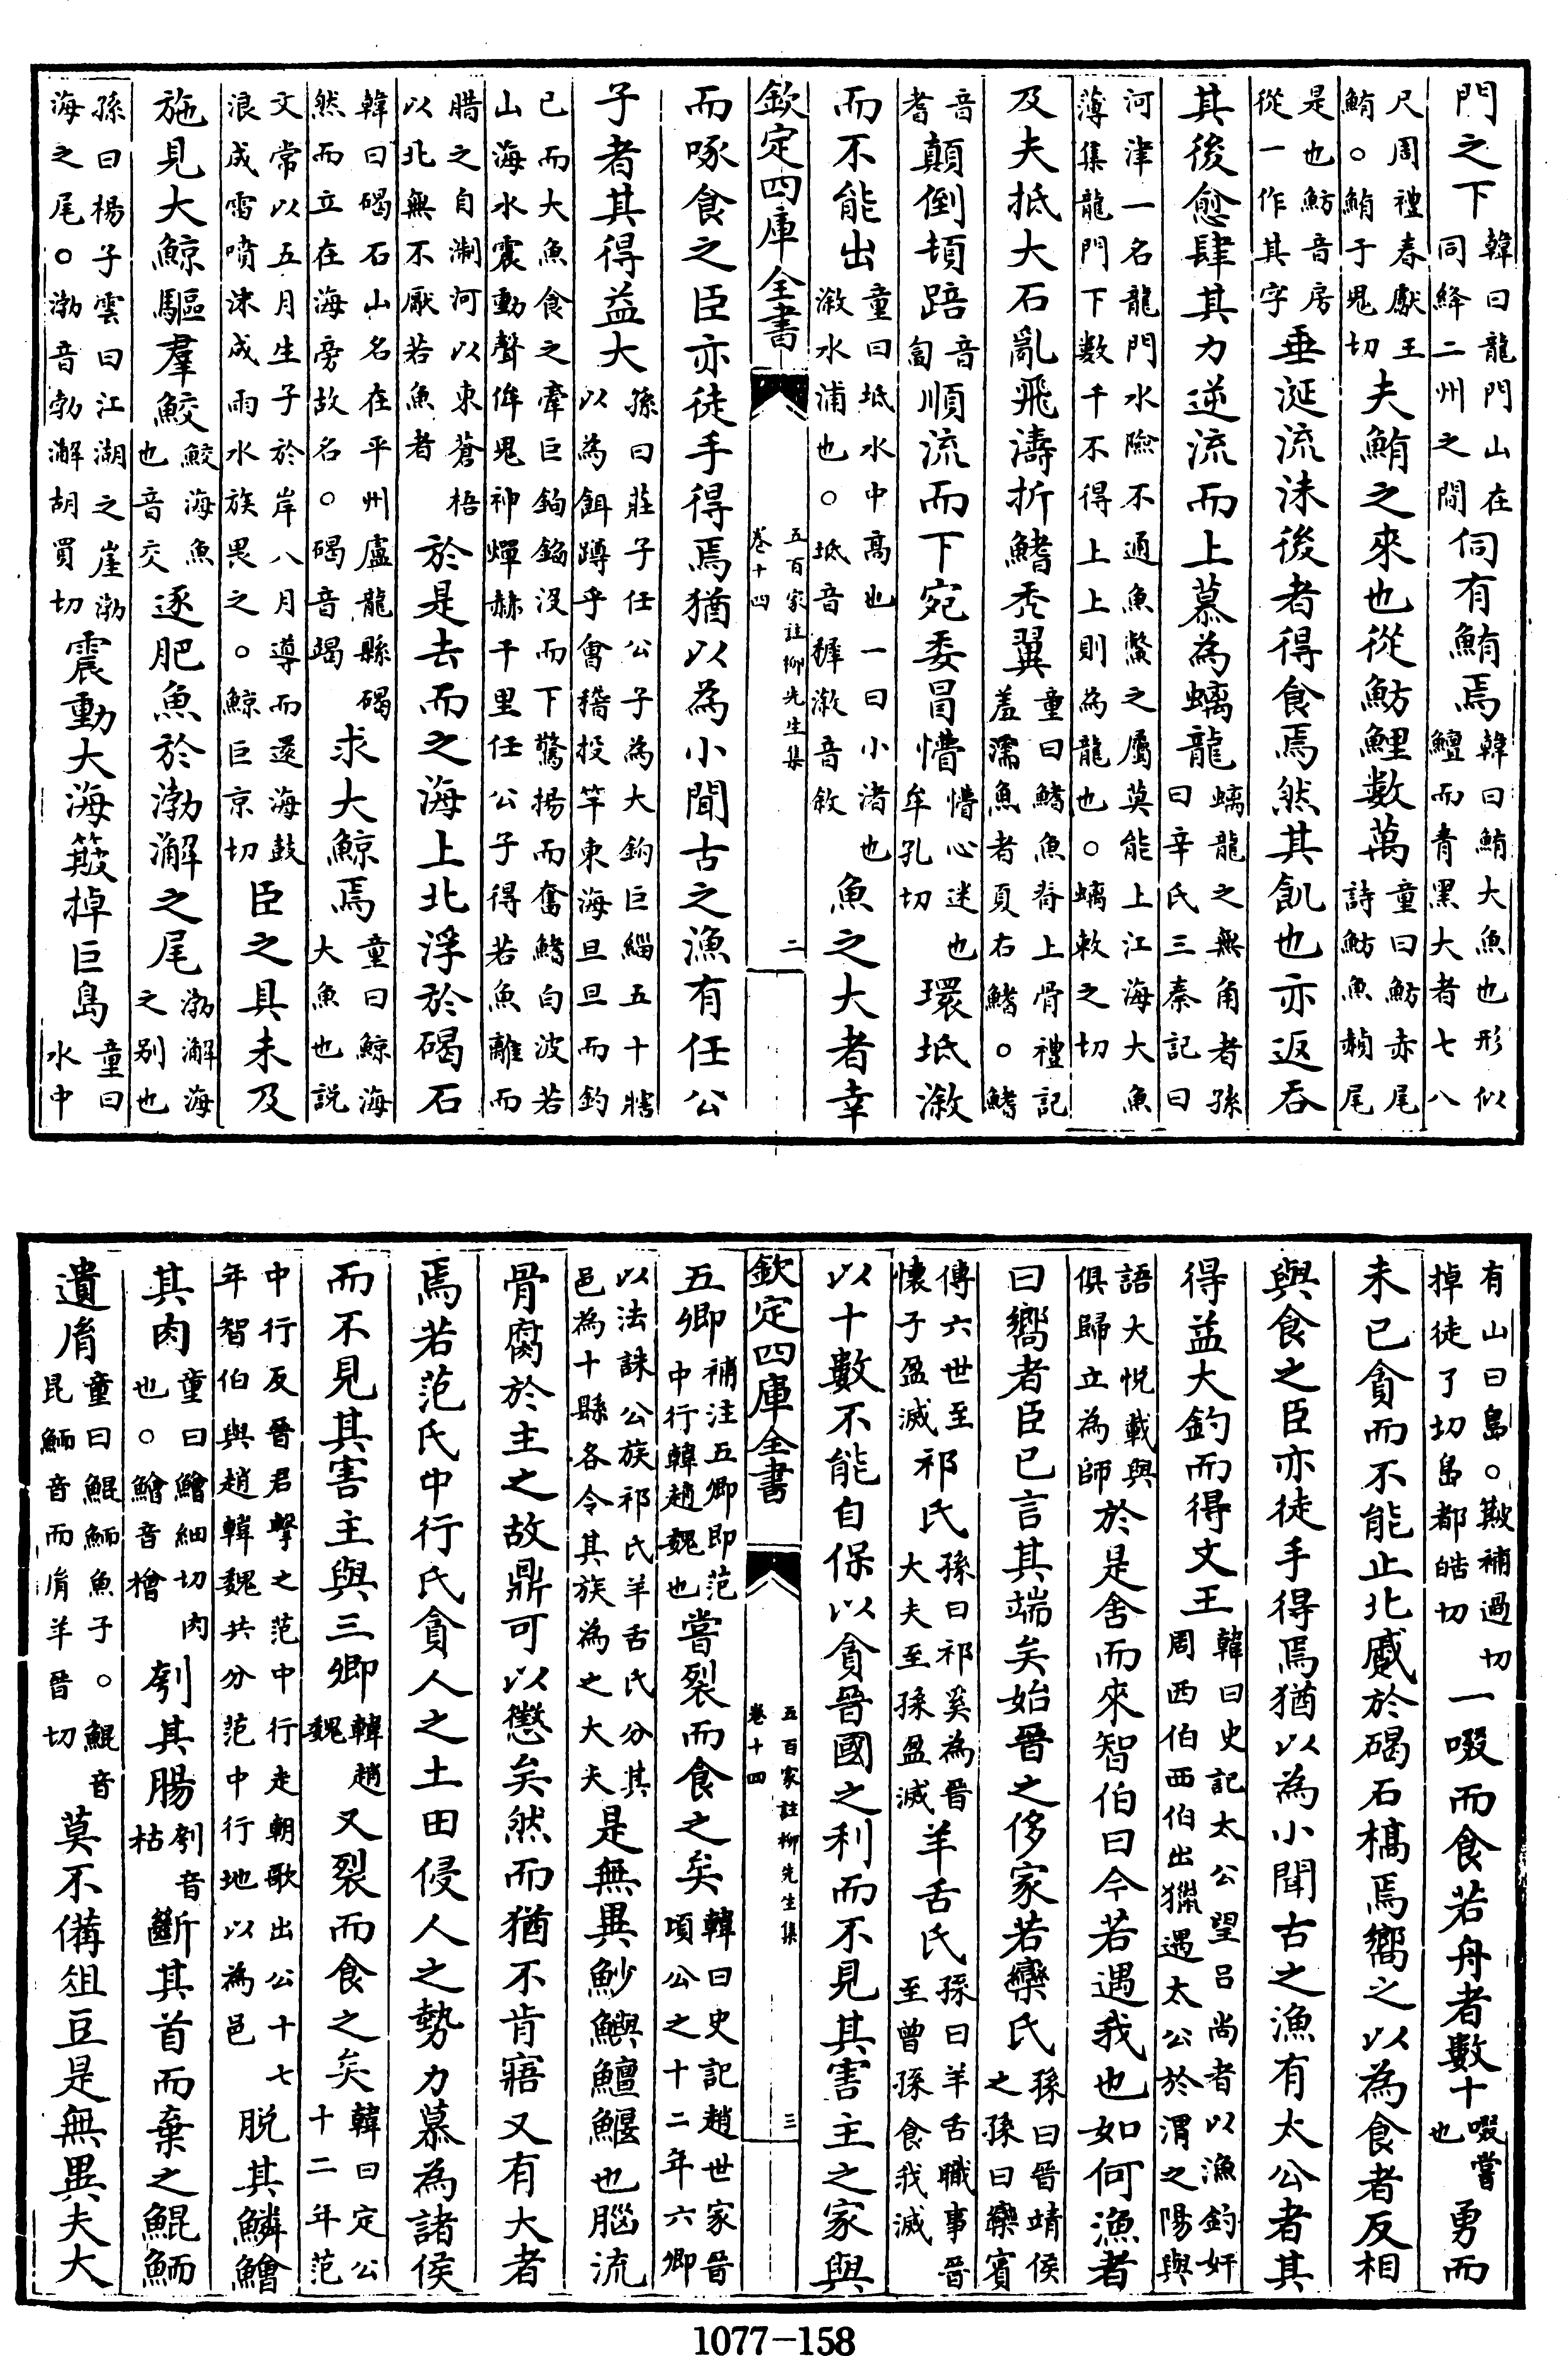 門之下韓曰龍門山在同絳二州之間伺有鮪焉韓曰鮪大魚也形似鱣而青黑大者七八
尺周禮春獻王鮪。鮪于鬼切夫鮪之來也從魴鯉數萬童曰魴赤尾詩魴魚赬尾
是也魴音房從一作其字垂涎流沫後者得食焉然其飢也亦返吞
其後愈肆其力逆流而上慕為螭龍螭龍之無角者孫曰辛氏三秦記曰
河津一名龍門水險不通魚鱉之屬莫能上江海大魚薄集龍門下數千不得上上則為龍也。螭敕之切
及夫抵大石亂飛濤折鰭禿翼童曰鰭魚脊上骨禮記羞濡魚者夏右鰭。鰭
音耆顛倒頓踣音匐順流而下宛委冒懵懵心迷也牟孔切環坻漵
而不能出童曰坻水中高也一曰小渚也漵水浦也。坻音墀漵音敘魚之大者幸
欽定四庫全書
五百家註柳先生集
卷十四
二
而啄食之臣亦徒手得焉猶以為小聞古之漁有任公
子者其得益大孫曰莊子任公子為大鈎巨緇五十犗以為餌蹲乎會稽投竿東海旦旦而釣
已而大魚食之牽巨鈎錎沒而下驚揚而奮鰭白波若山海水震動聲侔鬼神燀赫千里任公子得若魚離而
腊之自淛河以東蒼梧以北無不厭若魚者於是去而之海上北浮於碣石
韓曰碣石山名在平州盧龍縣碣然而立在海旁故名。碣音竭求大鯨焉童曰鯨海大魚也說
文常以五月生子於岸八月導而還海鼓浪成雷噴沫成雨水族畏之。鯨巨京切臣之具未及
施見大鯨驅羣鮫鮫海魚也音交逐肥魚於渤澥之尾渤澥海之别也
孫曰楊子雲曰江湖之崖渤海之尾。渤音勃澥胡買切震動大海簸掉巨島童曰水中
有山曰島。簸補過切掉徒了切島都皓切一啜而食若舟者數十啜嘗也勇而
未已貪而不能止北蹙於碣石槁焉嚮之以為食者反相
與食之臣亦徒手得焉猶以為小聞古之漁有太公者其
得益大釣而得文王韓曰史記太公望呂尚者以漁釣奸周西伯西伯出獵遇太公於渭之陽與
語大悅載與俱歸立為師於是舍而來智伯曰今若遇我也如何漁者
曰嚮者臣已言其端矣始晉之侈家若欒氏孫曰晉靖侯之孫曰欒賓
傳六世至懷子盈滅祁氏孫曰祁奚為晉大夫至孫盈滅羊舌氏孫曰羊舌職事晉至曾孫食我滅
以十數不能自保以貪晉國之利而不見其害主之家與
欽定四庫全書
五百家註柳先生集
卷十四
三
五卿補注五卿即范中行韓趙魏也嘗裂而食之矣韓曰史記趙世家晉頃公之十二年六卿
以法誅公族祁氏羊舌氏分其邑為十縣各令其族為之大夫是無異魦鱮鱣鰋也腦流
骨腐於主之故鼎可以懲矣然而猶不肯寤又有大者
焉若范氏中行氏貪人之土田侵人之勢力慕為諸侯
而不見其害主與三卿韓趙魏又裂而食之矣韓曰定公十二年范
中行反晉君擊之范中行走朝歌出公十七年智伯與趙韓魏共分范中行地以為邑脱其鱗鱠
其肉童曰鱠細切肉也。鱠音檜刳其腸刳音枯斷其首而棄之鯤鮞
遺胤童曰鯤鮞魚子。鯤音昆鮞音而胤羊晉切莫不備俎豆是無異夫大
1077-158